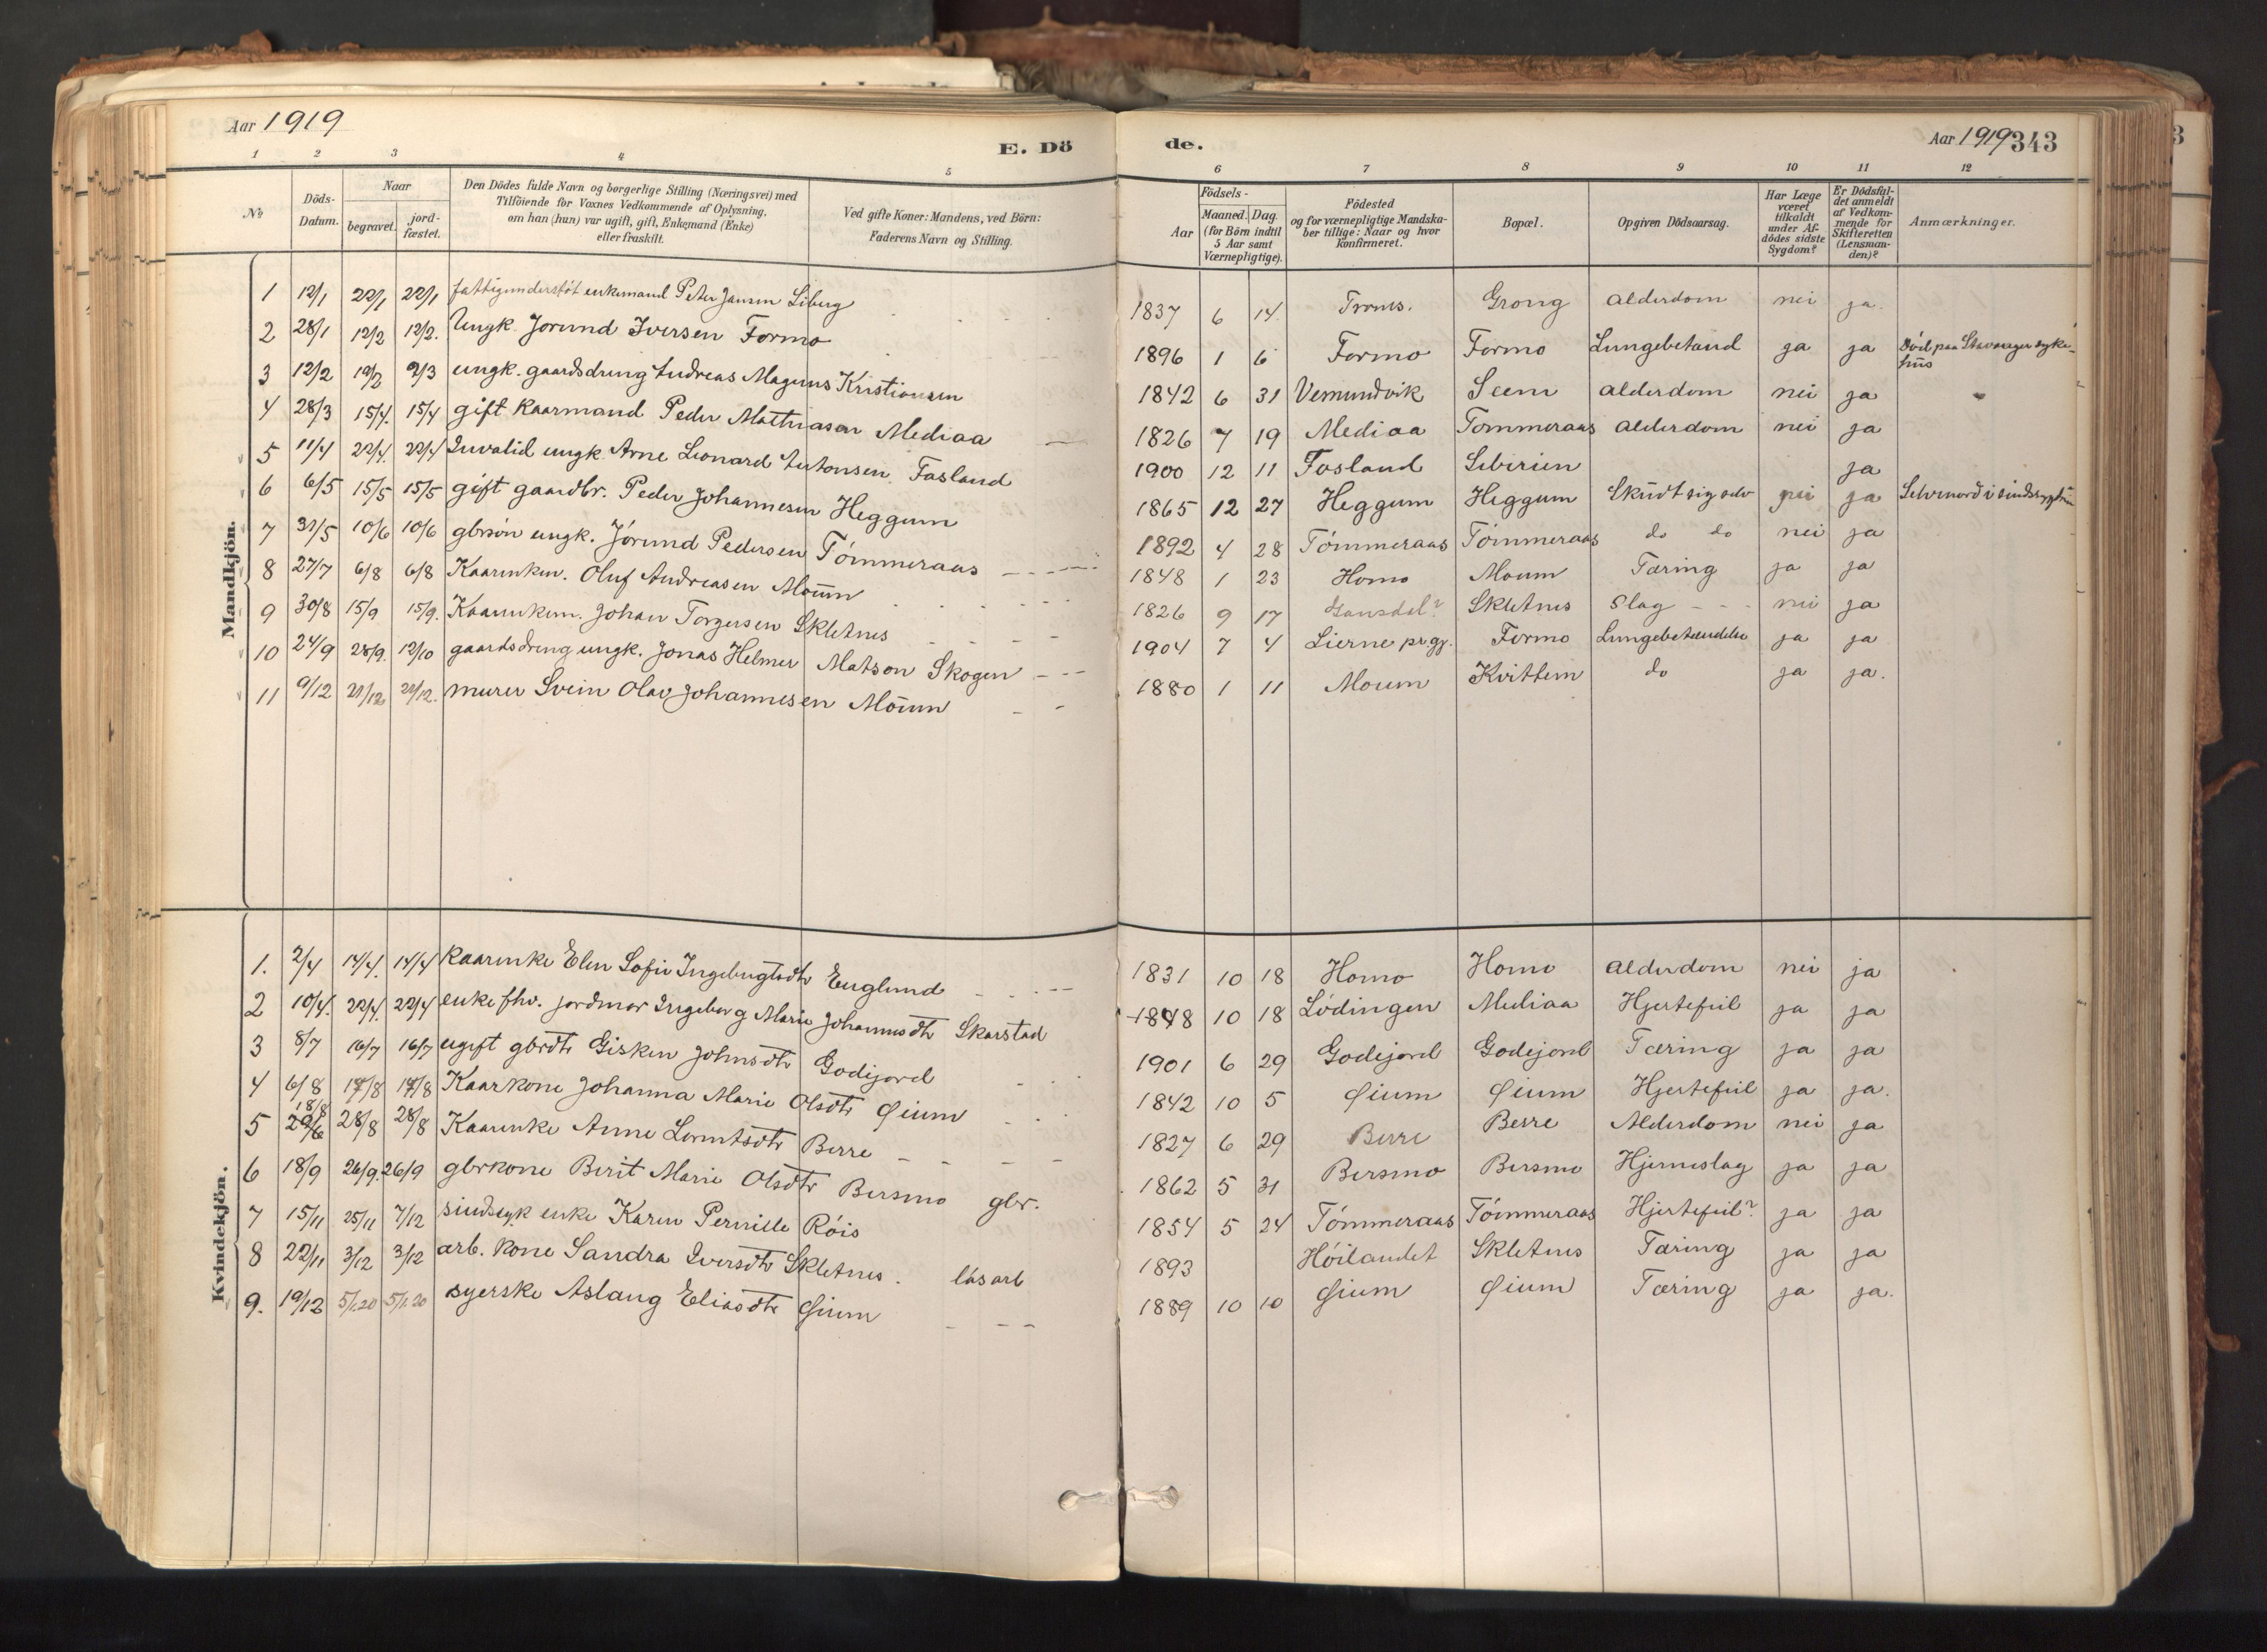 Aar 1919
E. Dö
de.
Aar 1919
343
1 2 3 4 5 6 7 8 9 10 11 12
№
Döds-Datum.
Naar
begravet.
jord-fæstet.
Den Dödes fulde Navn og borgerlige Stilling (Næringsvei) med
Tilföiende for Voxnes Vedkommende af Oplysning,
om han (hun) var ugift, gift, Enkemand (Enke)
eller fraskilt.
Ved gifte Koner: Mandens, ved Börn:
Faderens Navn og Stilling.
Födsels-
Aar
Maaned. Dag.
(for Börn indtil
5 Aar samt
Værnepligtige).
Födested
og for værnepligtige Mandska-
ber tillige: Naar og hvor
konfirmeret.
Bopæl.
Opgiven Dödsaarsag.
Har Læge
været
tilkaldt
under Af-
dödes sidste
Sygdom?
Er Dödsfal-
det anmeldt
af Vedkom-
mende for
Skifteretten
(Lensman-
den)?
Anmærkninger.
Mandkjön.
1 12/1 22/1 22/1 fattigunderstøt enkemand Peter Jansen Liberg 1837 6 14 Grong Alderdom nei ja.
2 28/1 12/2 12/2. Ungk. Jorund Iversen Formo 1896 1 6 Formo Formo Lungebetænd ja ja Död paa Stavanger syke-
hus
3 12/2 19/2 9/3 ungk. gaardsdreng Andreas Magnus Kristiansen 1842 6 31 Vemundvik Seem Alderdom nei ja
4 28/3 15/4. 15/4 gift Kaarmand Peder Mathiasen Mediaa 1826 7 19 Mediaa Tømmeraas Alderdom nei ja
5 11/4 22/4. 22/4 Invalid ungk. Arne Leonard Antonsen Fosland 1900 12 11 Fosland Sibirien ja
6 6/5 15/5 15/5 gift gaardbr. Peder Johannesen Heggum 1865 12 27 Heggum Heggum Skudt sig selv nei ja Selvmord i
7 31/5 10/6 10/6 gbrsön ungk. Jórund Pedersen Tómmeraas 1892 4 28 Tómmeraas Tómmeraas do do nei ja
8 27/7 6/8 6/8 Kaarenkem. Oluf Andreasen Moum 1848 1 23 Homo Moum Tæring ja ja
9 30/8 15/9 15/9. Kaarenkem. Johan Torgersen Skletnes 1826 9 17 Skletnes Slag nei ja
10 24/9 28/9. 12/10 gaardsdreng ungk. Jonas Helmer Matson Skogen 1904 7 4 Lierne pr.gj. Formo Lungebetændelse ja ja
11 9/12 21/12 21/12. murer Svein Olav Johannesen Moum 1880 1 11 Moum Kvittem do ja ja.
Kvindekjön.
1. 2/4 14/4. 14/4 Kaarenke Elen Sofie Ingebrigtsdtr Englund 1831 10 18 Homo Homo Alderdom nei ja
2 10/4. 22/4. 22/4 enke fhv. jordmor Ingeborg Marie Johannesdtr Skarstad 1848 10 18 Lódingen Mediaa Hjertefeil ja ja
3 8/7 16/7 16/7 ugift gbrdtr Gisken Johnsdtr Godejord 1901 6 29 Godejord Godejord Tæring ja ja
4 6/8 17/8 17/8 Kaarkone Johanna Marie Olsdtr Øium 1842 10 5 Øium Øium Hjertefeil ja ja.
5 18/8 29/6 28/8 28/8 Kaarenke Anne Lorntsdtr Berre 1827 6 29 Berre Berre Alderdom nei ja
6 18/9 26/9. 26/9 gbrkone Berit Marie Olsdtr Bersmo gbr. 1862 5 31 Bersmo Bersmo Hjerneslag ja ja
7 15/11 25/11 7/12 sindssyk enke Karen Pernille Róis 1854 5 24 Tómmeraas Tómmeraas Hjertefeil? ja ja
8 22/11 3/12 3/12 arb. kone Sandra Iversdtr Skletnes. lósarb 1893 Hóilandet Skletnes Tæring ja ja
9. 19/12 5/1.20 5/1.20 syerske Aslaug Eliasdtr Øium 1889 10 10 Øium Øium Tæring ja ja.